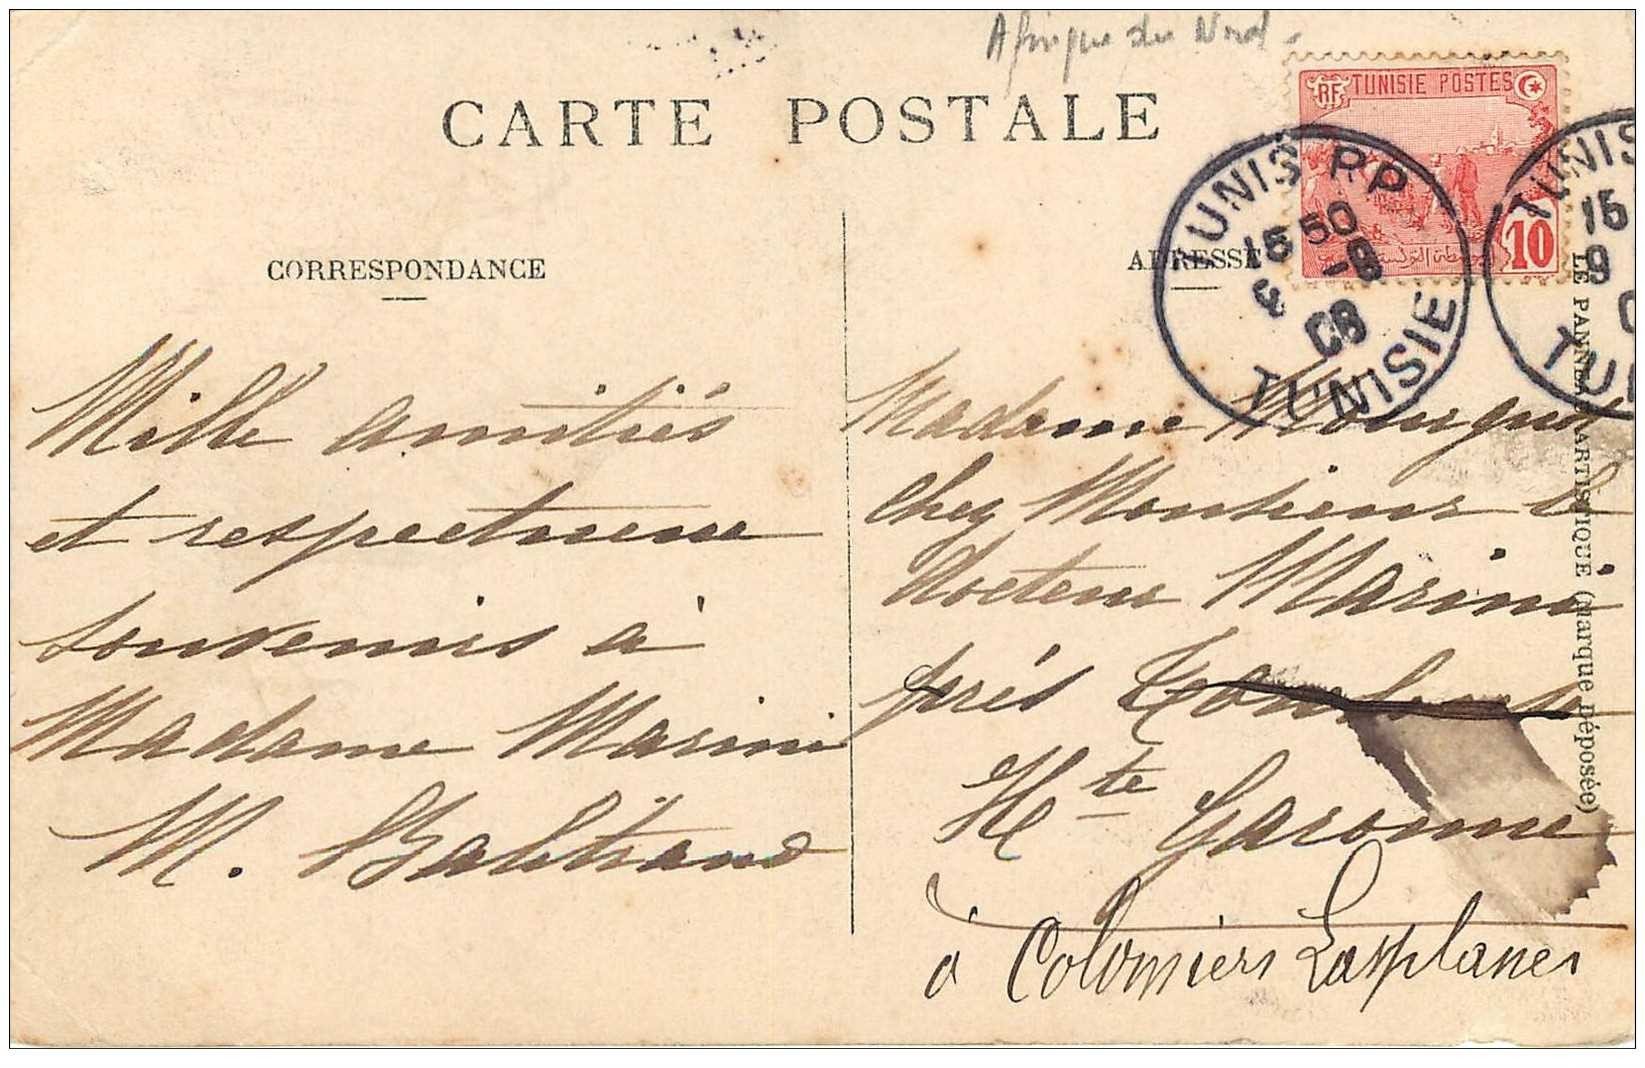 Afrique du Nord
CARTE POSTALE
RF TUNISIE POSTES
10
TUNIS R.P
15 50
9 - 8
08
TUNISIE
TUNIS
15
9
TUN
CORRESPONDANCE
ADRESSE
Mille amitiés
et respectueux
souvenirs à
Madame Marini
M. Baltrand
Madame Mourgues
chez Monsieur le
Docteur Marini
près Toulouse
Hte Garonne
à Colomiers Lasplanes
LE PANNEAU ARTISTIQUE (marque déposée)